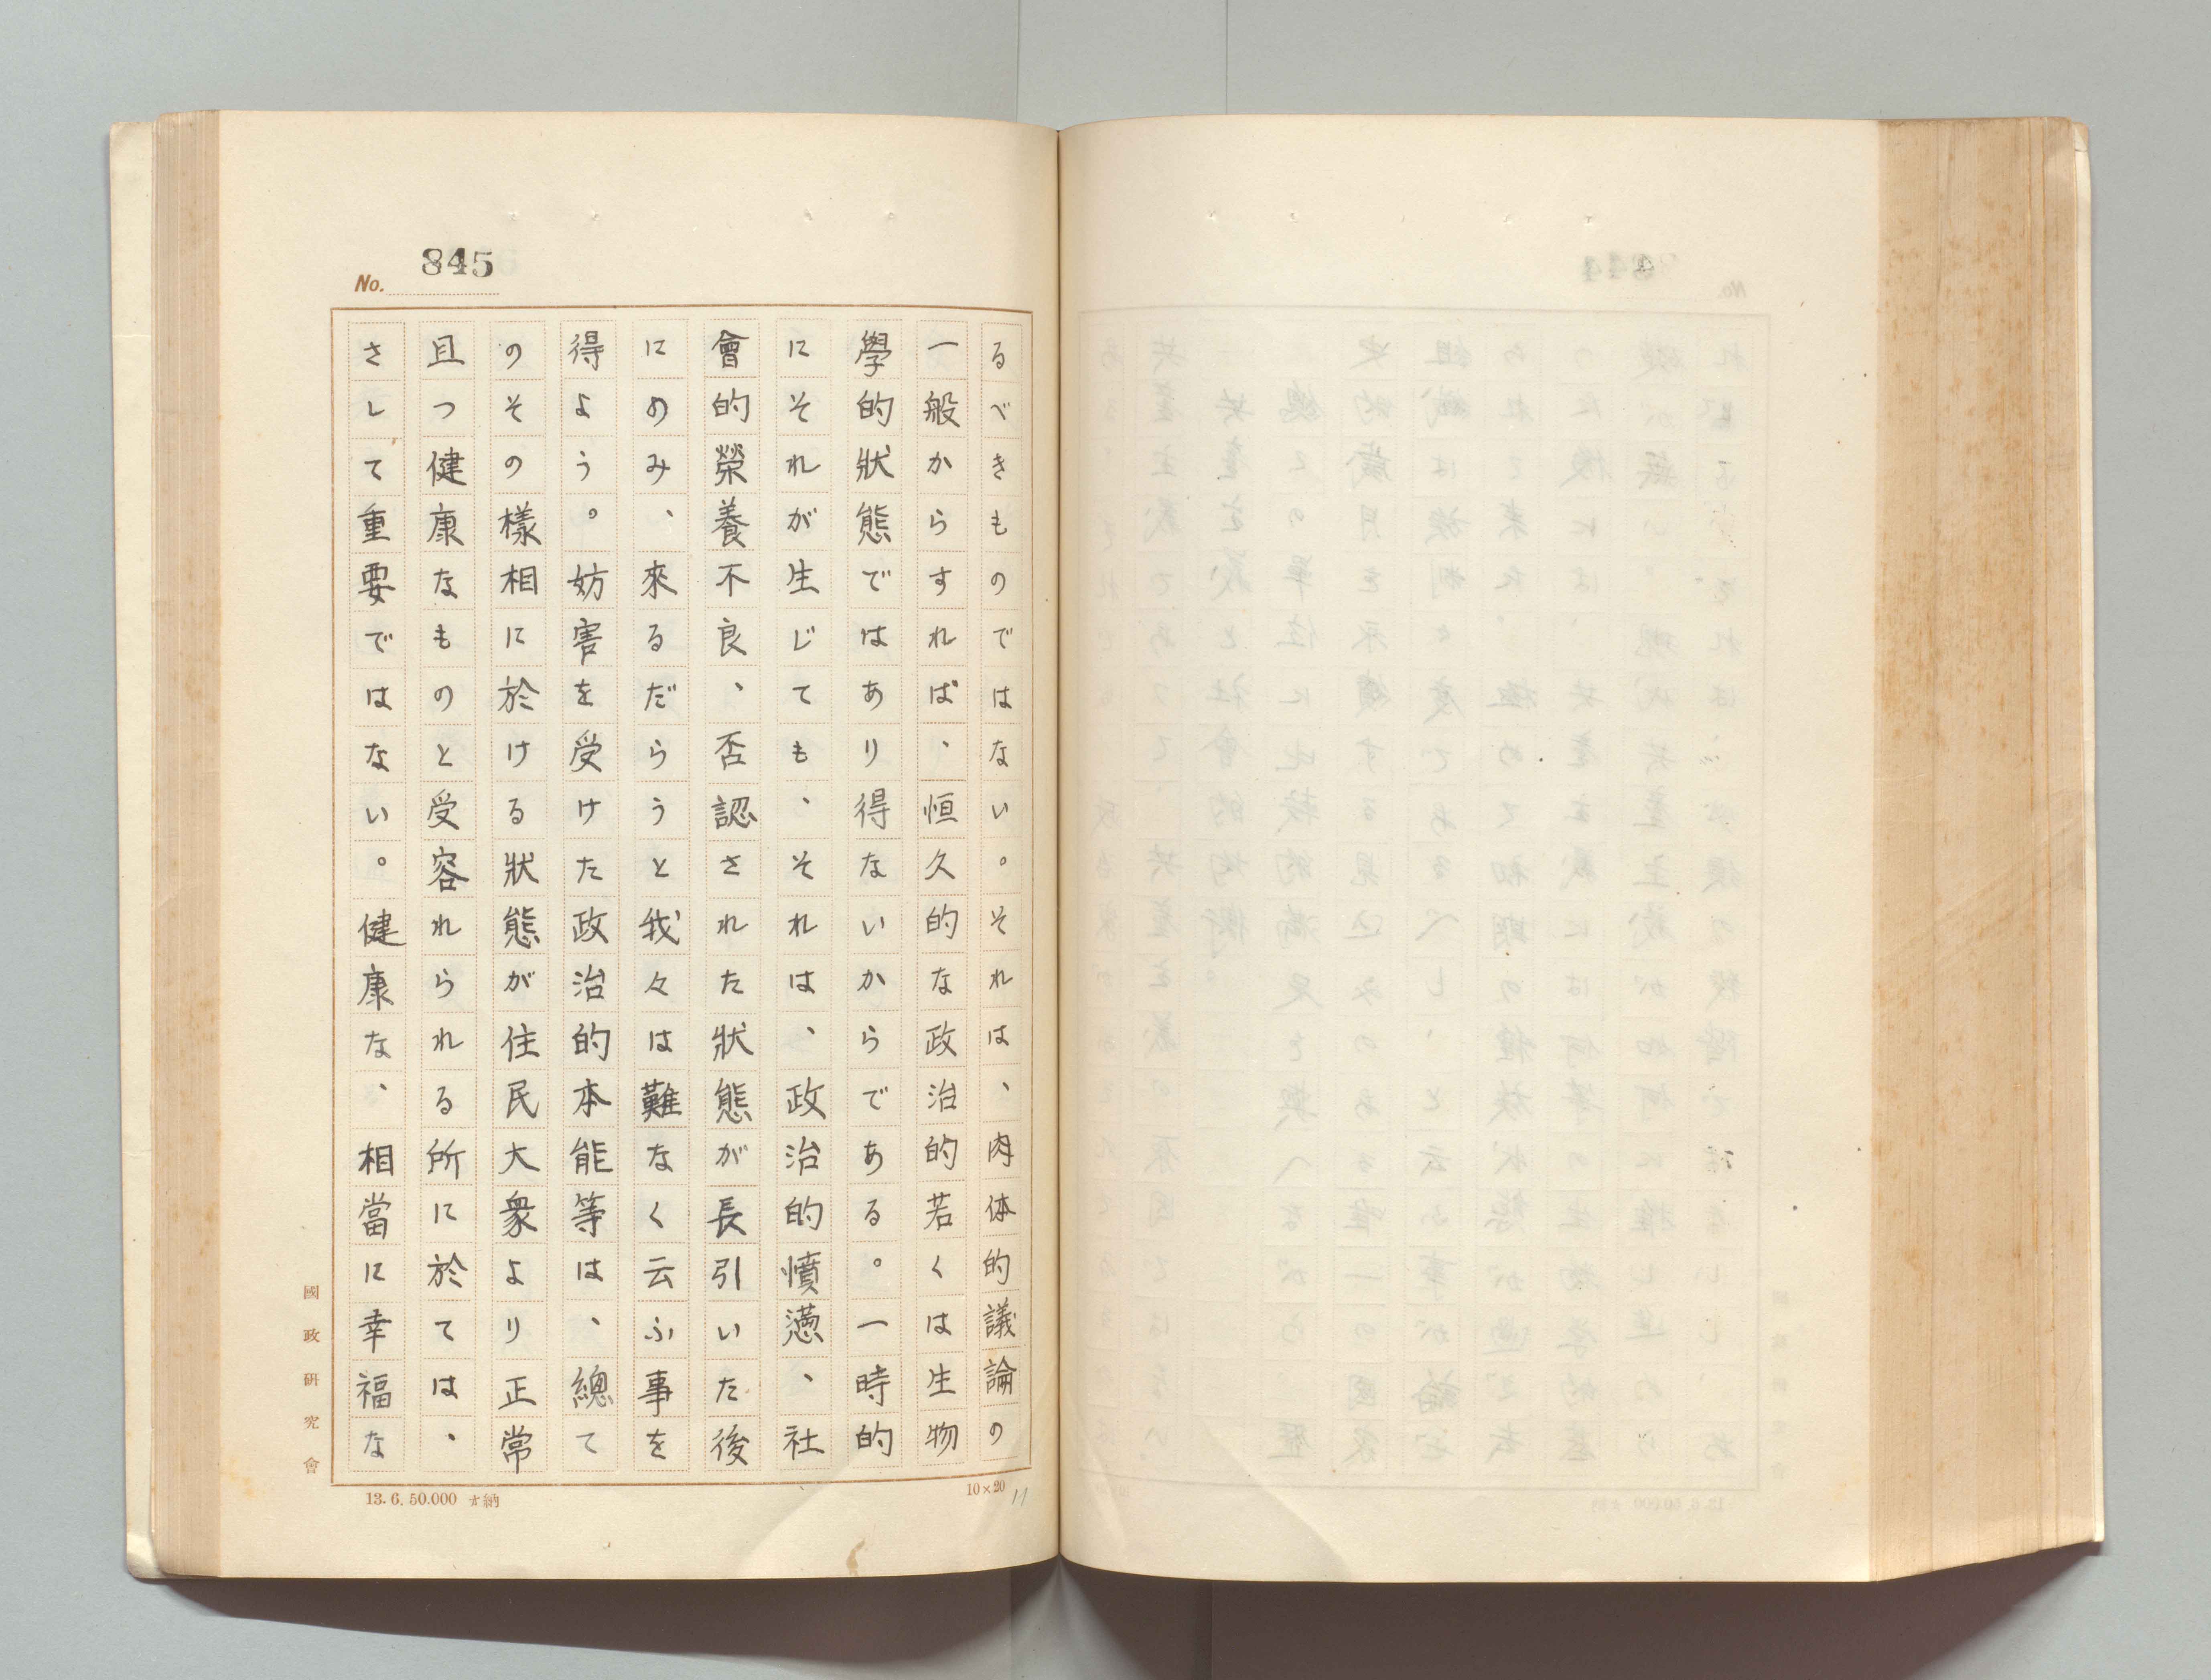 No. 845
るべきものではない。それは、肉体的議論の
一般からすれば、恒久的な政治的若くは生物
學的狀態ではあり得ないからである。一時的
にそれが生じても、それは、政治的憤懣、社
會的榮養不良、否認された狀態が長引いた後
にのみ、來るだらうと我々は難なく云ふ事を
得よう。妨害を受けた政治的本能等は、總て
のその樣相に於ける狀態が住民大衆より正常
且つ健康なものと受容れられる所に於ては、
さして重要ではない。健康な、相當に幸福な
國政硏究會
13.6.50.000 納
10×20
11